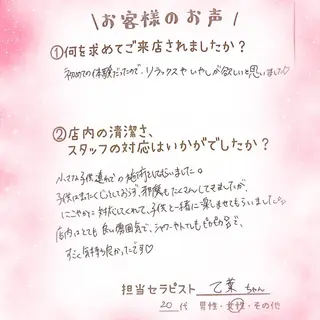 \お客様のお声/
①何を求めてご来店されましたか？
初めての体験だったので、リラックスやいやしが欲しいと思いました♡
②店内の清潔さ、
スタッフの対応はいかがでしたか？
小さな子供連れでの施術としてもらいました。
子供はまったくじっとしておらず、邪魔もたくさんしてきましたが、
にこやかに対応してくれて、子供と一緒に楽しませてもらいました。
店内はとても良い雰囲気で、シャワーやトイレもピカピカで、
すごく気持ち良かったです♡
担当セラピスト 乙葉ちゃん
20代 男性・女性・その他